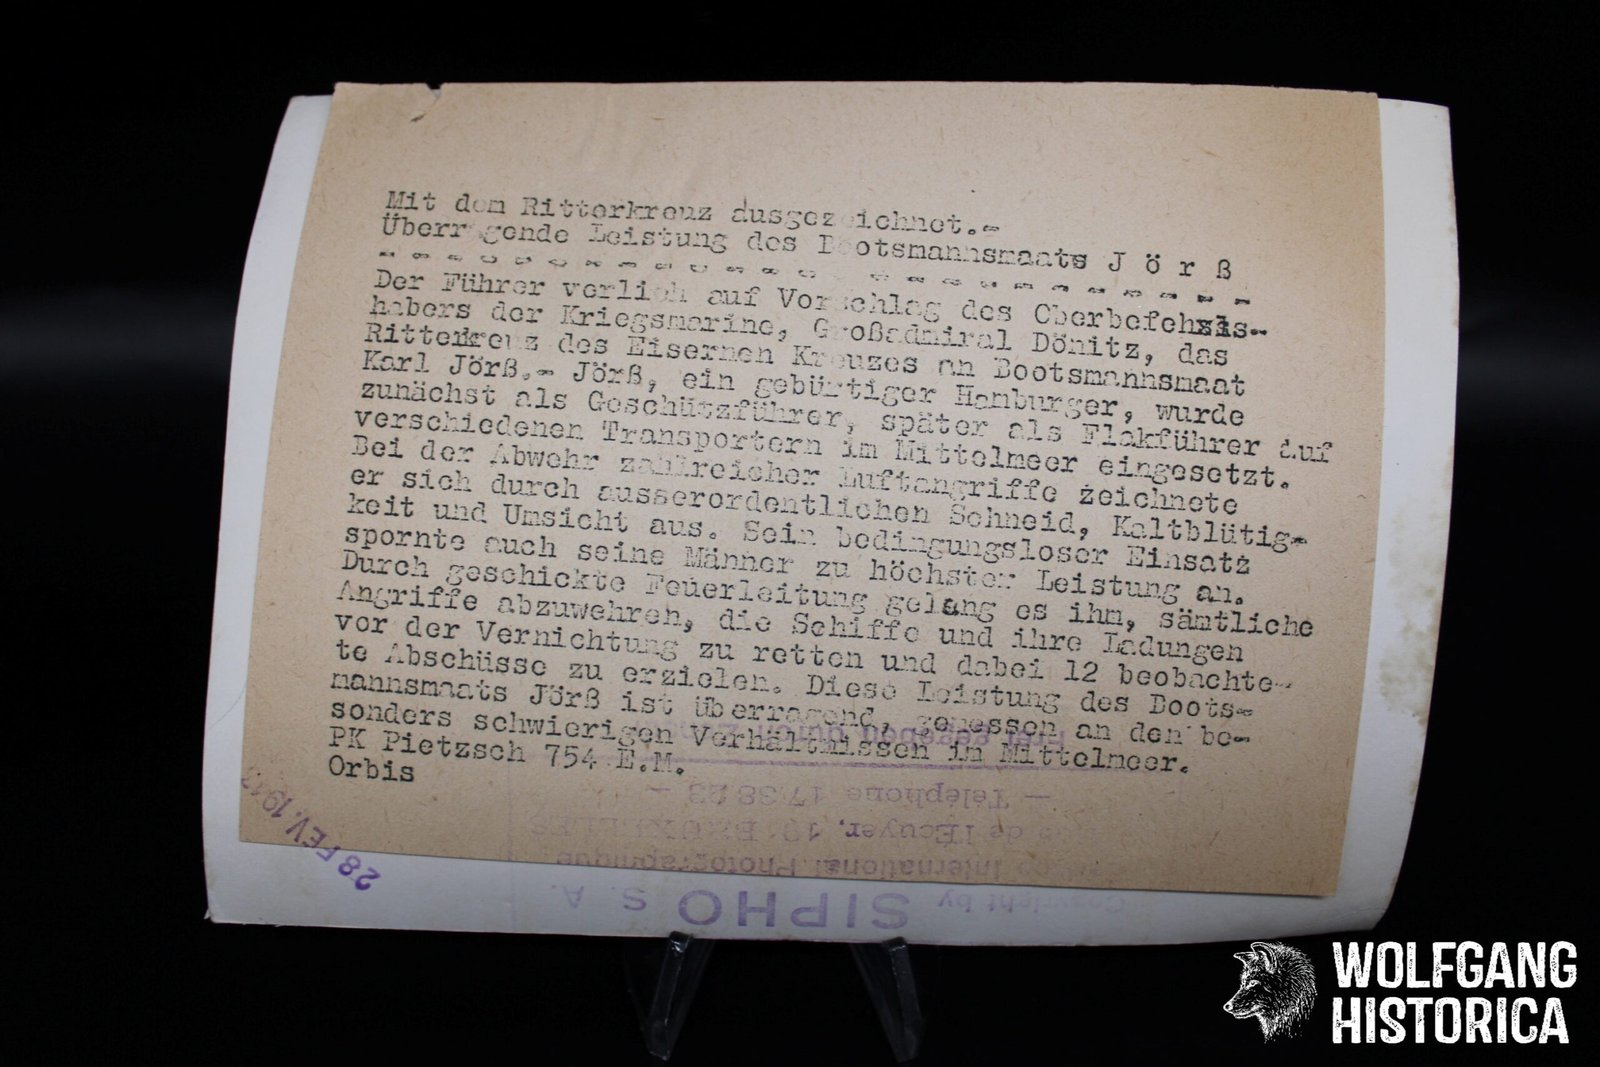 Mit dem Ritterkreuz ausgezeichnet.-
Überragende Leistung des Bootsmannsmaats J ö r ß
- - - - - - - - - - - - - - - - - - - - - - - -
Der Führer verlieh auf Vorschlag des Oberbefehls-
habers der Kriegsmarine, Großadmiral Dönitz, das
Ritterkreuz des Eisernen Kreuzes an Bootsmannsmaat
Karl Jörß.- Jörß, ein gebürtiger Hamburger, wurde
zunächst als Geschützführer, später als Flakführer auf
verschiedenen Transportern im Mittelmeer eingesetzt.
Bei der Abwehr zahlreicher Luftangriffe zeichnete
er sich durch ausserordentlichen Schneid, Kaltblütig-
keit und Umsicht aus. Sein bedingungsloser Einsatz
spornte auch seine Männer zu höchster Leistung an.
Durch geschickte Feuerleitung gelang es ihm, sämtliche
Angriffe abzuwehren, die Schiffe und ihre Ladungen
vor der Vernichtung zu retten und dabei 12 beobachte-
te Abschüsse zu erzielen. Diese Leistung des Boots-
mannsmaats Jörß ist überragend, gemessen an den be-
sonders schwierigen Verhältnissen im Mittelmeer.
PK Pietzsch 754 E.M.
Orbis
28 FEV. 194
Copyright by SIPHO S. A.
International Photographique
de l'Ecuyer, 10, BRUXELLES
- Téléphone 17.38.23 -
Frei gegeben durch
WOLFGANG
HISTORICA